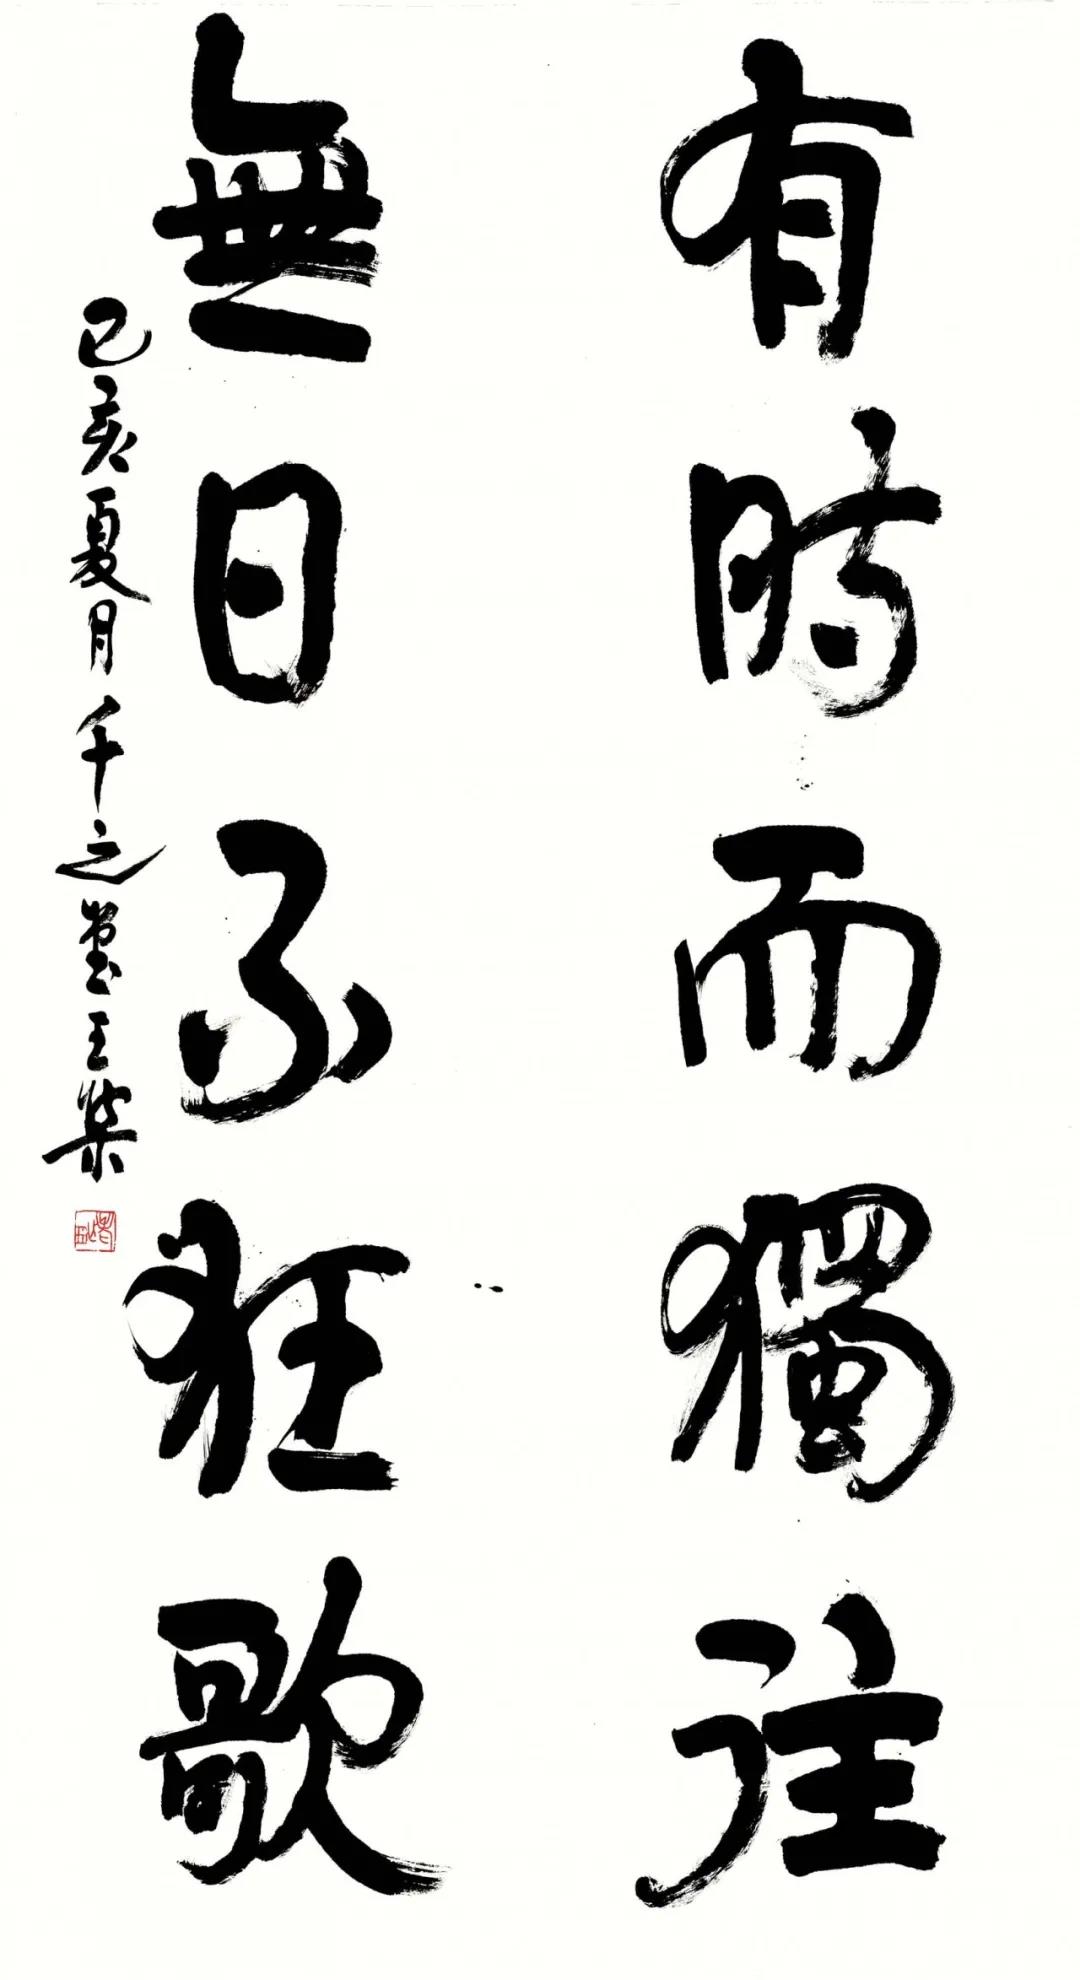 有時而獨往
無日不狂歌
己亥夏月千之堂王柴